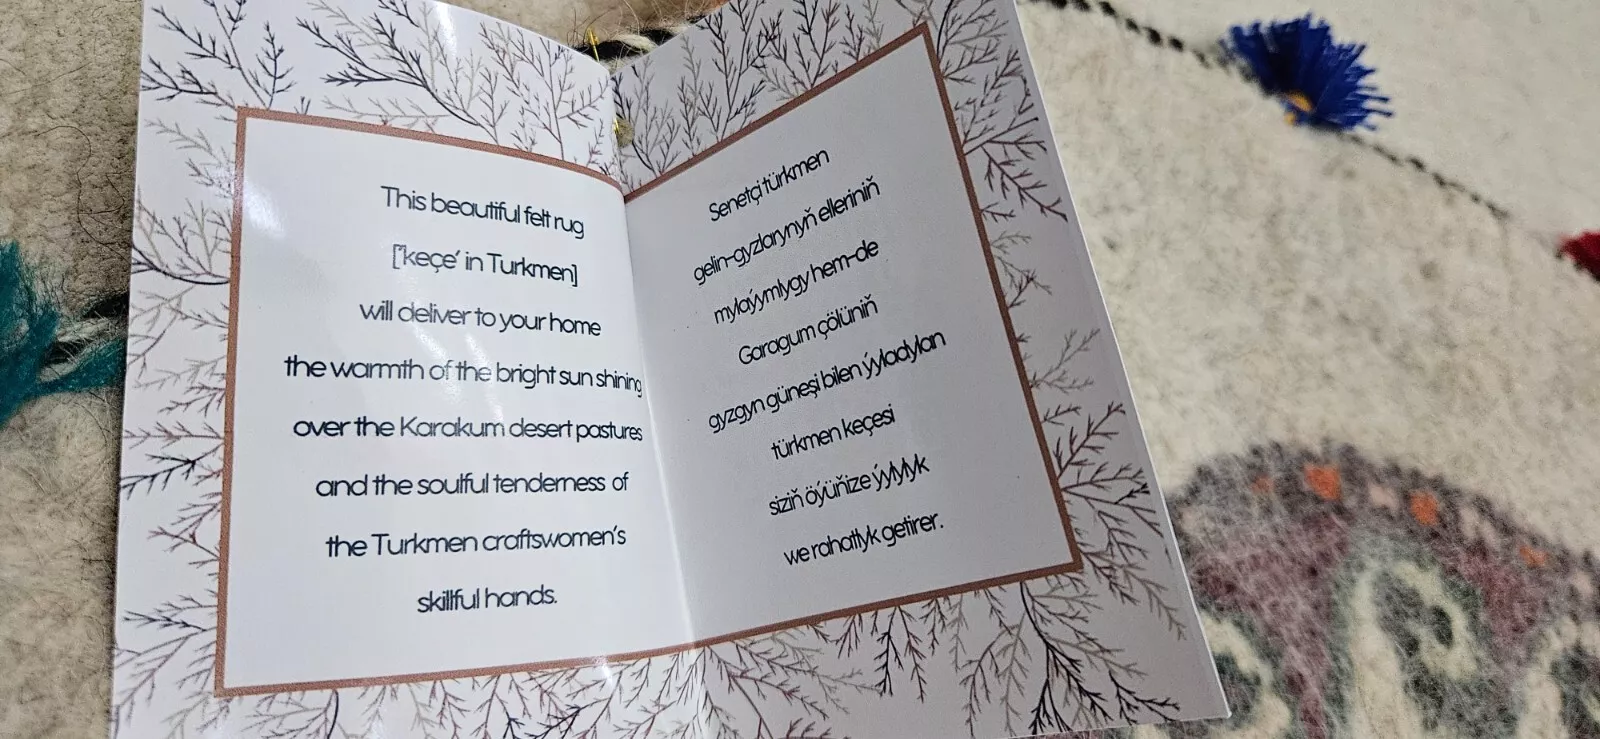 This beautiful felt rug
['keçe' in Turkmen]
will deliver to your home
the warmth of the bright sun shining
over the Karakum desert pastures
and the soulful tenderness of
the Turkmen craftswomen's
skillful hands.
Senetçi türkmen
gelin-gyzlarynyň elleriniň
mylaýymlygy hem-de
Garagum çölüniň
gyzgyn güneşi bilen ýyladylan
türkmen keçesi
siziň öýüňize ýylylyk
we rahatlyk getirer.